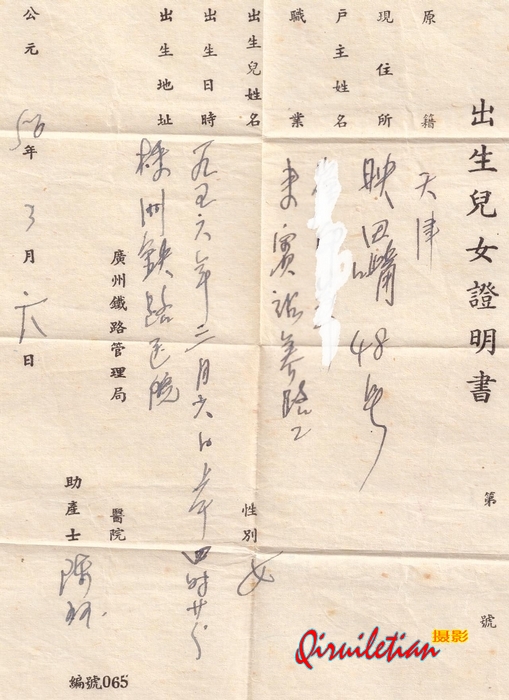 出生兒女證明書
第 號
原籍 天津
現住所 映田嘴 48号
戶主姓名
職業 来賓站养路工
出生兒姓名 性別 女
出生日時 一九五六年二月六日上午四时廿分
出生地址 株州鉄路医院
廣州鐵路管理局 醫院
助產士 陈
公元 56年 3月 六日
編號065
Qiruiletian 摄影